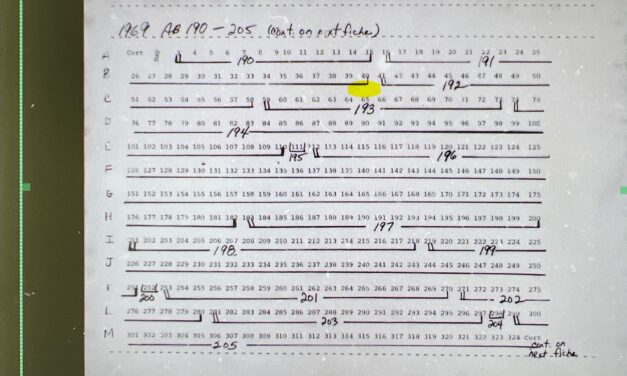 1969 AB 190 - 205 (cont. on next fiche)
A Cert Map 3 4 5 6 7 8 9 10 11 12 13 14 15 16 17 18 19 20 21 22 23 24 25
190 191
B 26 27 28 29 30 31 32 33 34 35 36 37 38 39 40 41 42 43 44 45 46 47 48 49 50
192
C 51 52 53 54 55 56 57 58 60 61 62 63 64 65 66 67 68 69 70 71 72 73 75
193
D 76 77 78 79 80 81 82 83 84 85 86 87 88 89 90 91 92 93 94 95 96 97 98 99 100
194
E 101 102 103 104 105 106 107 108 109 110 111 112 113 114 115 116 117 118 119 120 121 122 123 124 125
195 196
F 126 127 128 129 130 131 132 133 134 135 136 137 138 139 140 141 142 143 144 145 146 147 148 149 150
G 151 152 153 154 155 156 157 158 159 160 161 162 163 164 165 166 167 168 169 170 171 172 173 174 175
H 176 177 178 179 180 181 182 183 184 185 186 187 188 189 190 191 192 193 194 195 196 197 198 199 200
197
I 201 202 203 204 205 206 207 208 209 210 211 212 213 214 215 216 217 218 219 220 221 222 223 224 225
198 199
J 226 227 228 229 230 231 232 233 234 235 236 237 238 239 240 241 242 243 244 245 246 247 248 249 250
251 252 253 254 255 256 257 258 259 260 261 262 263 264 265 266 267 268 269 270 271 272 273 274 275
200 201 202
L 276 277 278 279 280 281 282 283 284 285 286 287 288 289 290 291 292 293 294 295 296 297 298 299 300
203 204
M 301 302 303 304 305 306 307 308 309 310 311 312 313 314 315 316 317 318 319 320 321 322 323 324 Cert
205 cont. on
next fiche